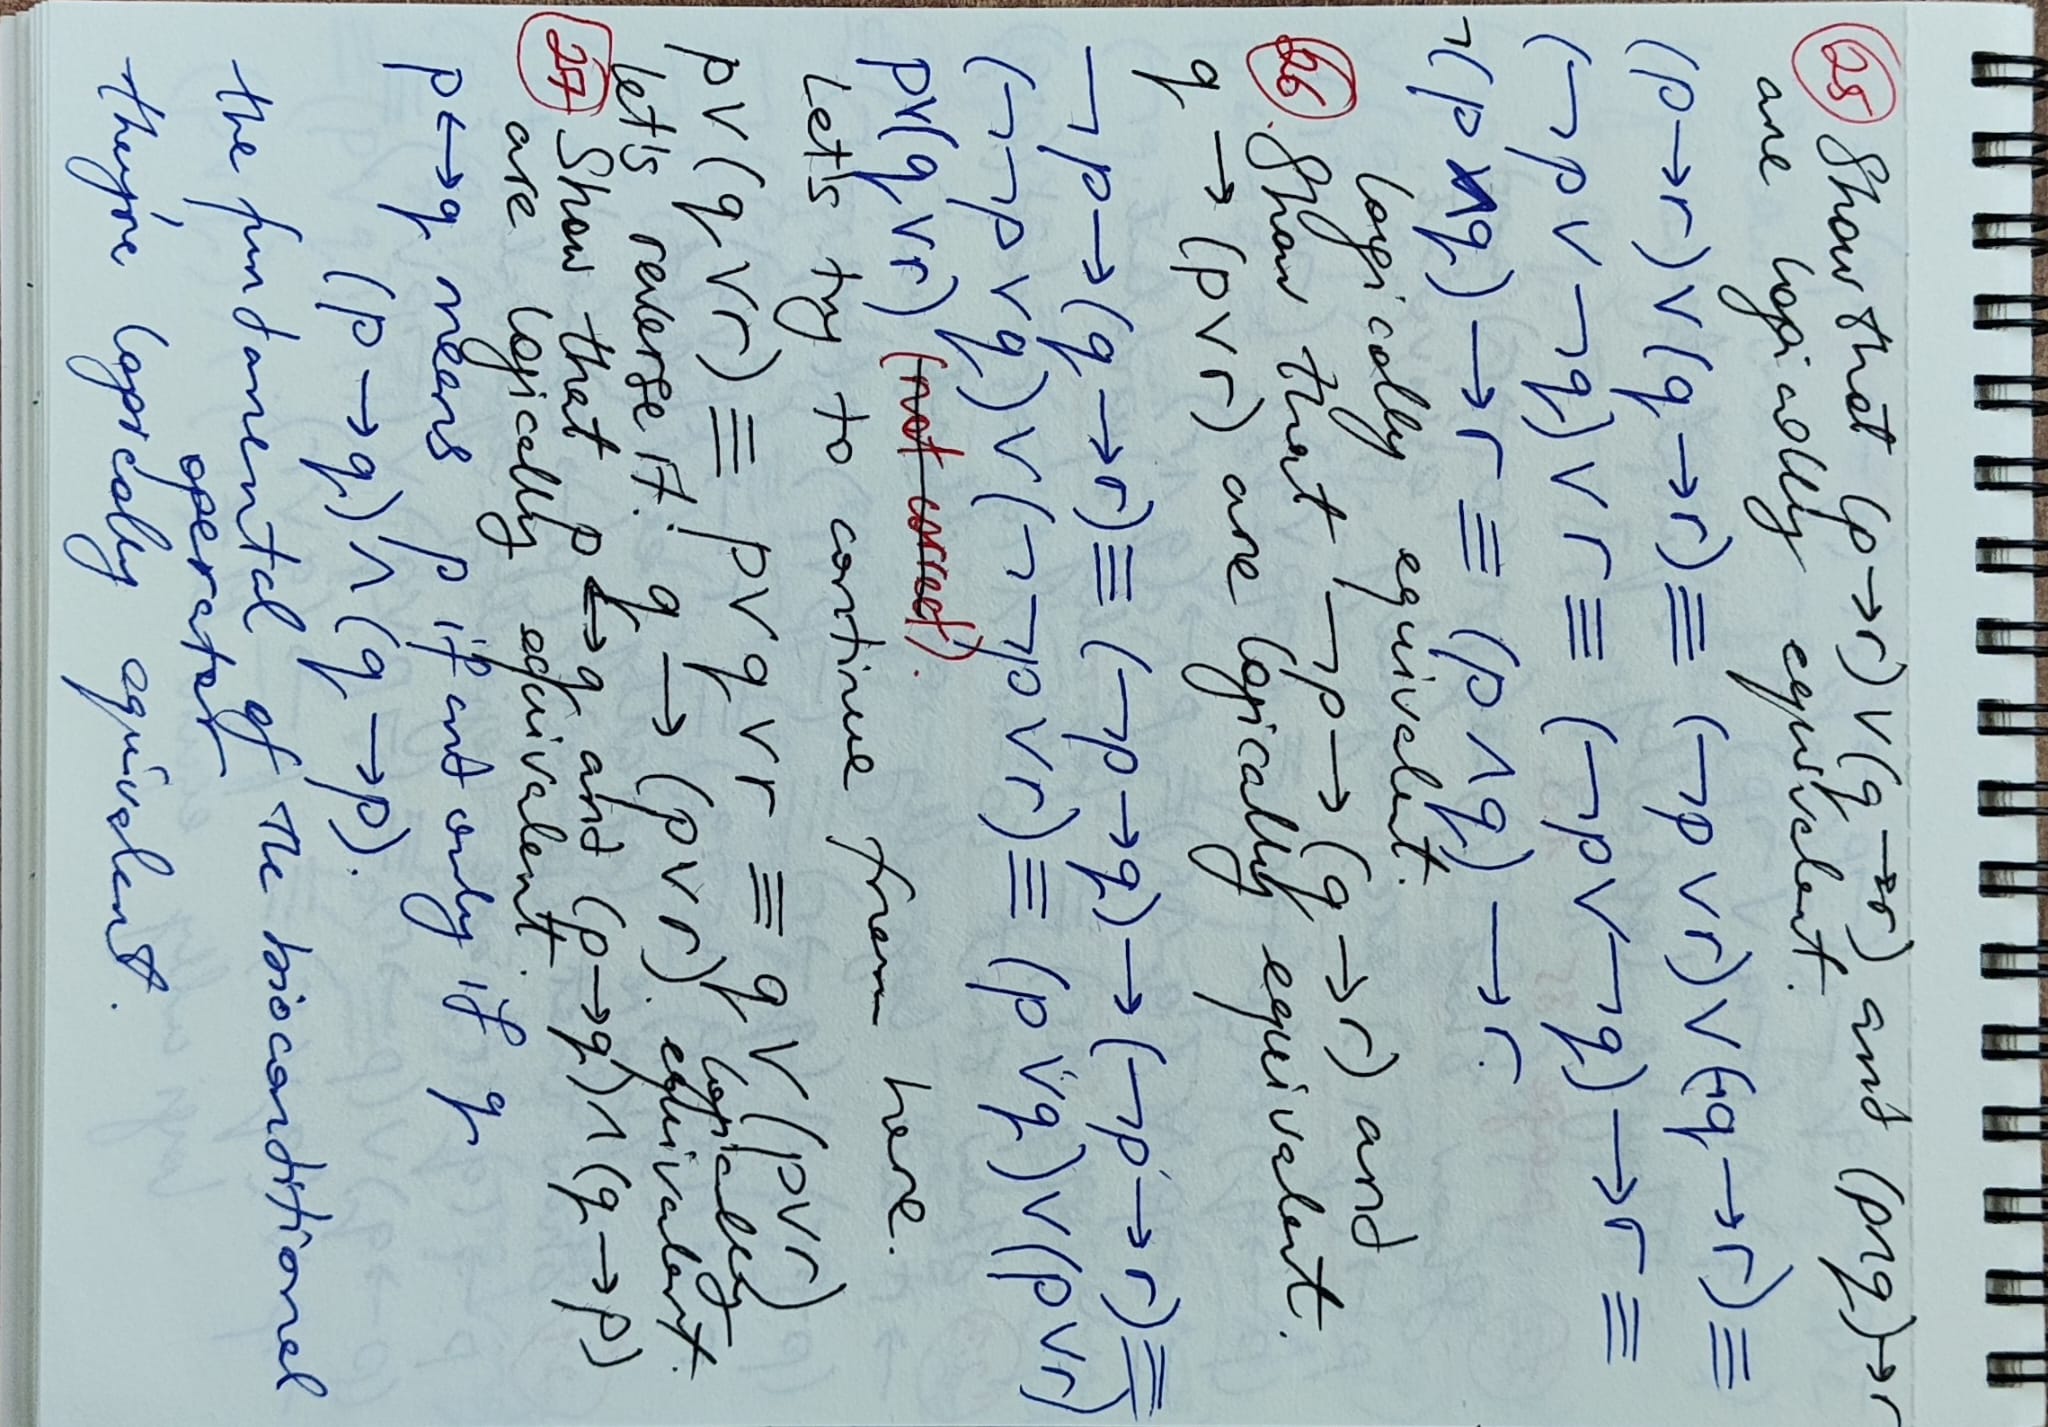 25 Show that (p→r)∨(q→r) and (p∧q)→r
are logically equivalent.
(p→r)∨(q→r)≡(¬p∨r)∨(q→r)≡
(¬p∨¬q)∨r≡(¬p∨¬q)→r≡
¬(p∧q)→r≡(p∧q)→r.
logically equivalent.
26. Show that ¬p→(q→r) and
q→(p∨r) are logically equivalent.
¬p→(q→r)≡(¬p→q)→(¬p→r)≡
(¬¬p∨q)∨(¬¬p∨r)≡(p∨q)∨(p∨r)
p∨(q∨r) (not correct).
Let's try to continue from here.
p∨(q∨r)≡p∨q∨r≡q∨(p∨r)
let's reverse it! q→(p∨r). logically equivalent.
27 Show that p↔q and (p→q)∧(q→p)
are logically equivalent.
p↔q means p if and only if q
(p→q)∧(q→p).
the fundamental of the biocarditional
operator
they're logically equivalent.